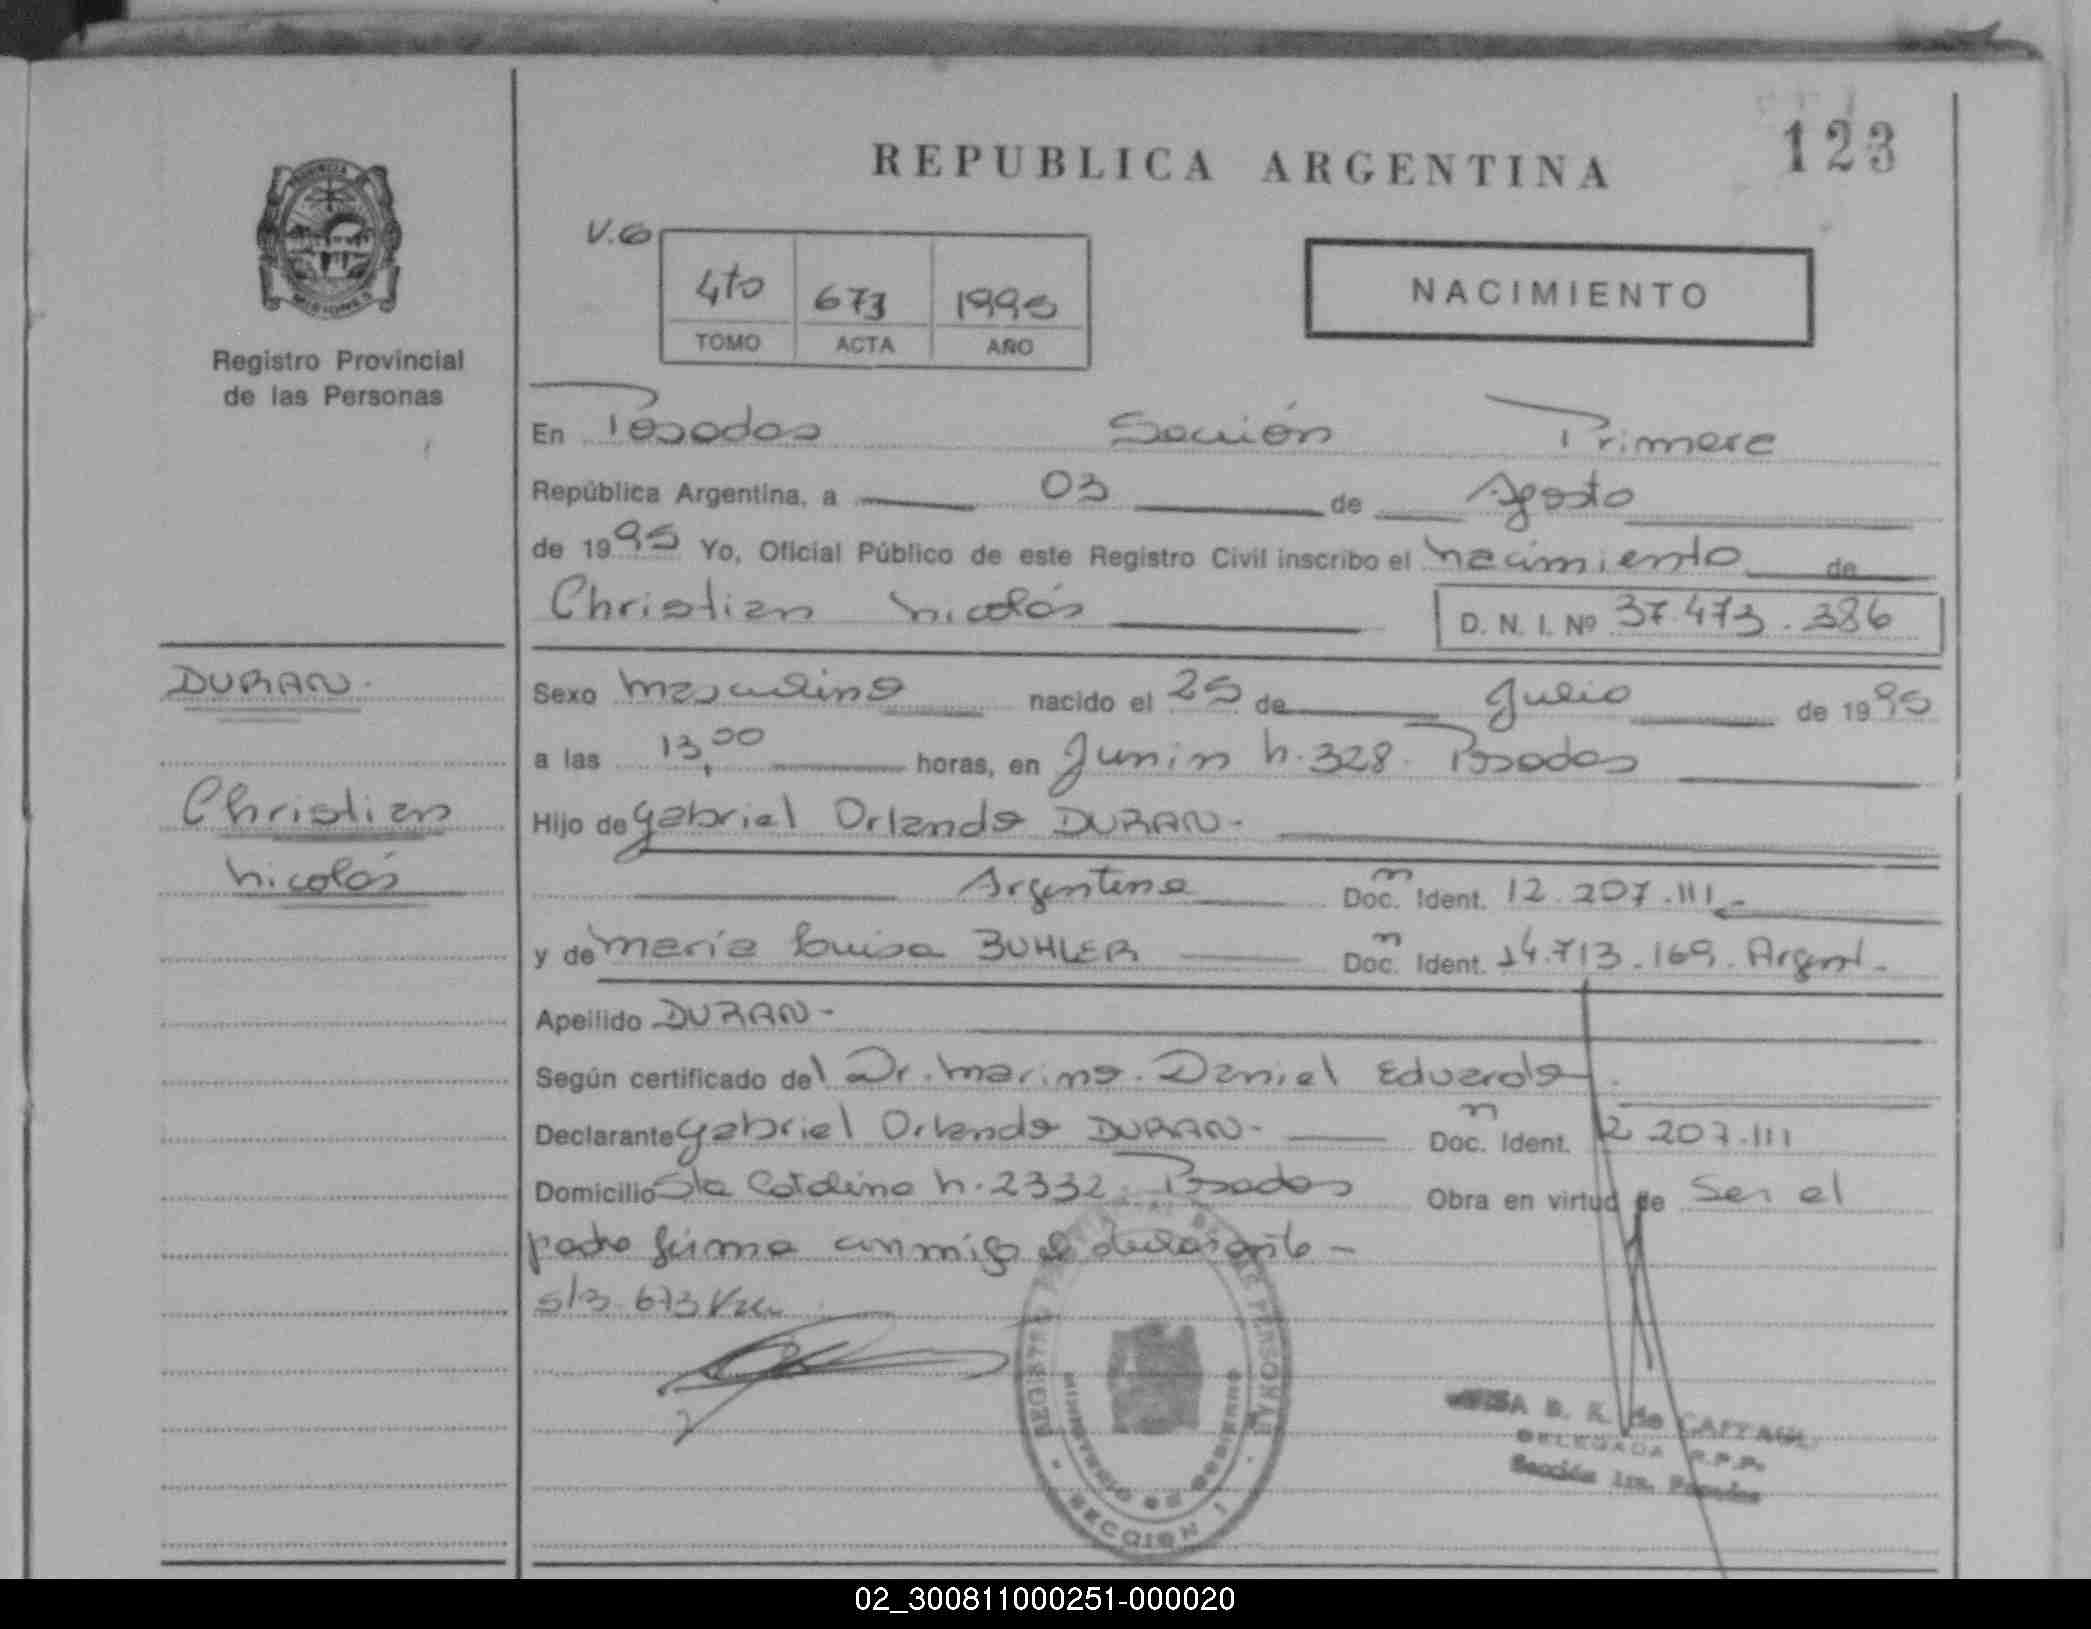 123
REPUBLICA ARGENTINA
V.G
4to 673 1995
TOMO ACTA AÑO
NACIMIENTO
PROVINCIA DE
MISIONES
Registro Provincial
de las Personas
En Posadas Sección Primera
República Argentina, a 03 de Agosto
de 1995 Yo, Oficial Público de este Registro Civil inscribo el nacimiento de
Christian Nicolás D. N. I. Nº 37.473.386
DURAN.
Christian
Nicolás
Sexo Masculino nacido el 25 de Julio de 1995
a las 13,00 horas, en Junin N.328. Posadas
Hijo de Gabriel Orlando DURAN.
Argentina Doc. n Ident. 12.207.111
y de María Luisa BUHLER Doc. n Ident. 14.713.169. Argent.
Apellido DURAN
Según certificado del Dr. Marino. Daniel Eduardo
Declarante Gabriel Orlando DURAN. Doc. n Ident. 12.207.111
Domicilio Sta Catalina N.2332. Posadas Obra en virtud de Ser el
padre firma conmigo el declarante
673
REGISTRO PROVINCIAL DE LAS PERSONAS
MINISTERIO DE GOBIERNO
SECCION 1
B. K. de
DELEGADA R.P.P.
Sección 1ra. Posadas
02_300811000251-000020